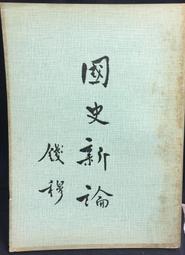 國史新論
錢穆